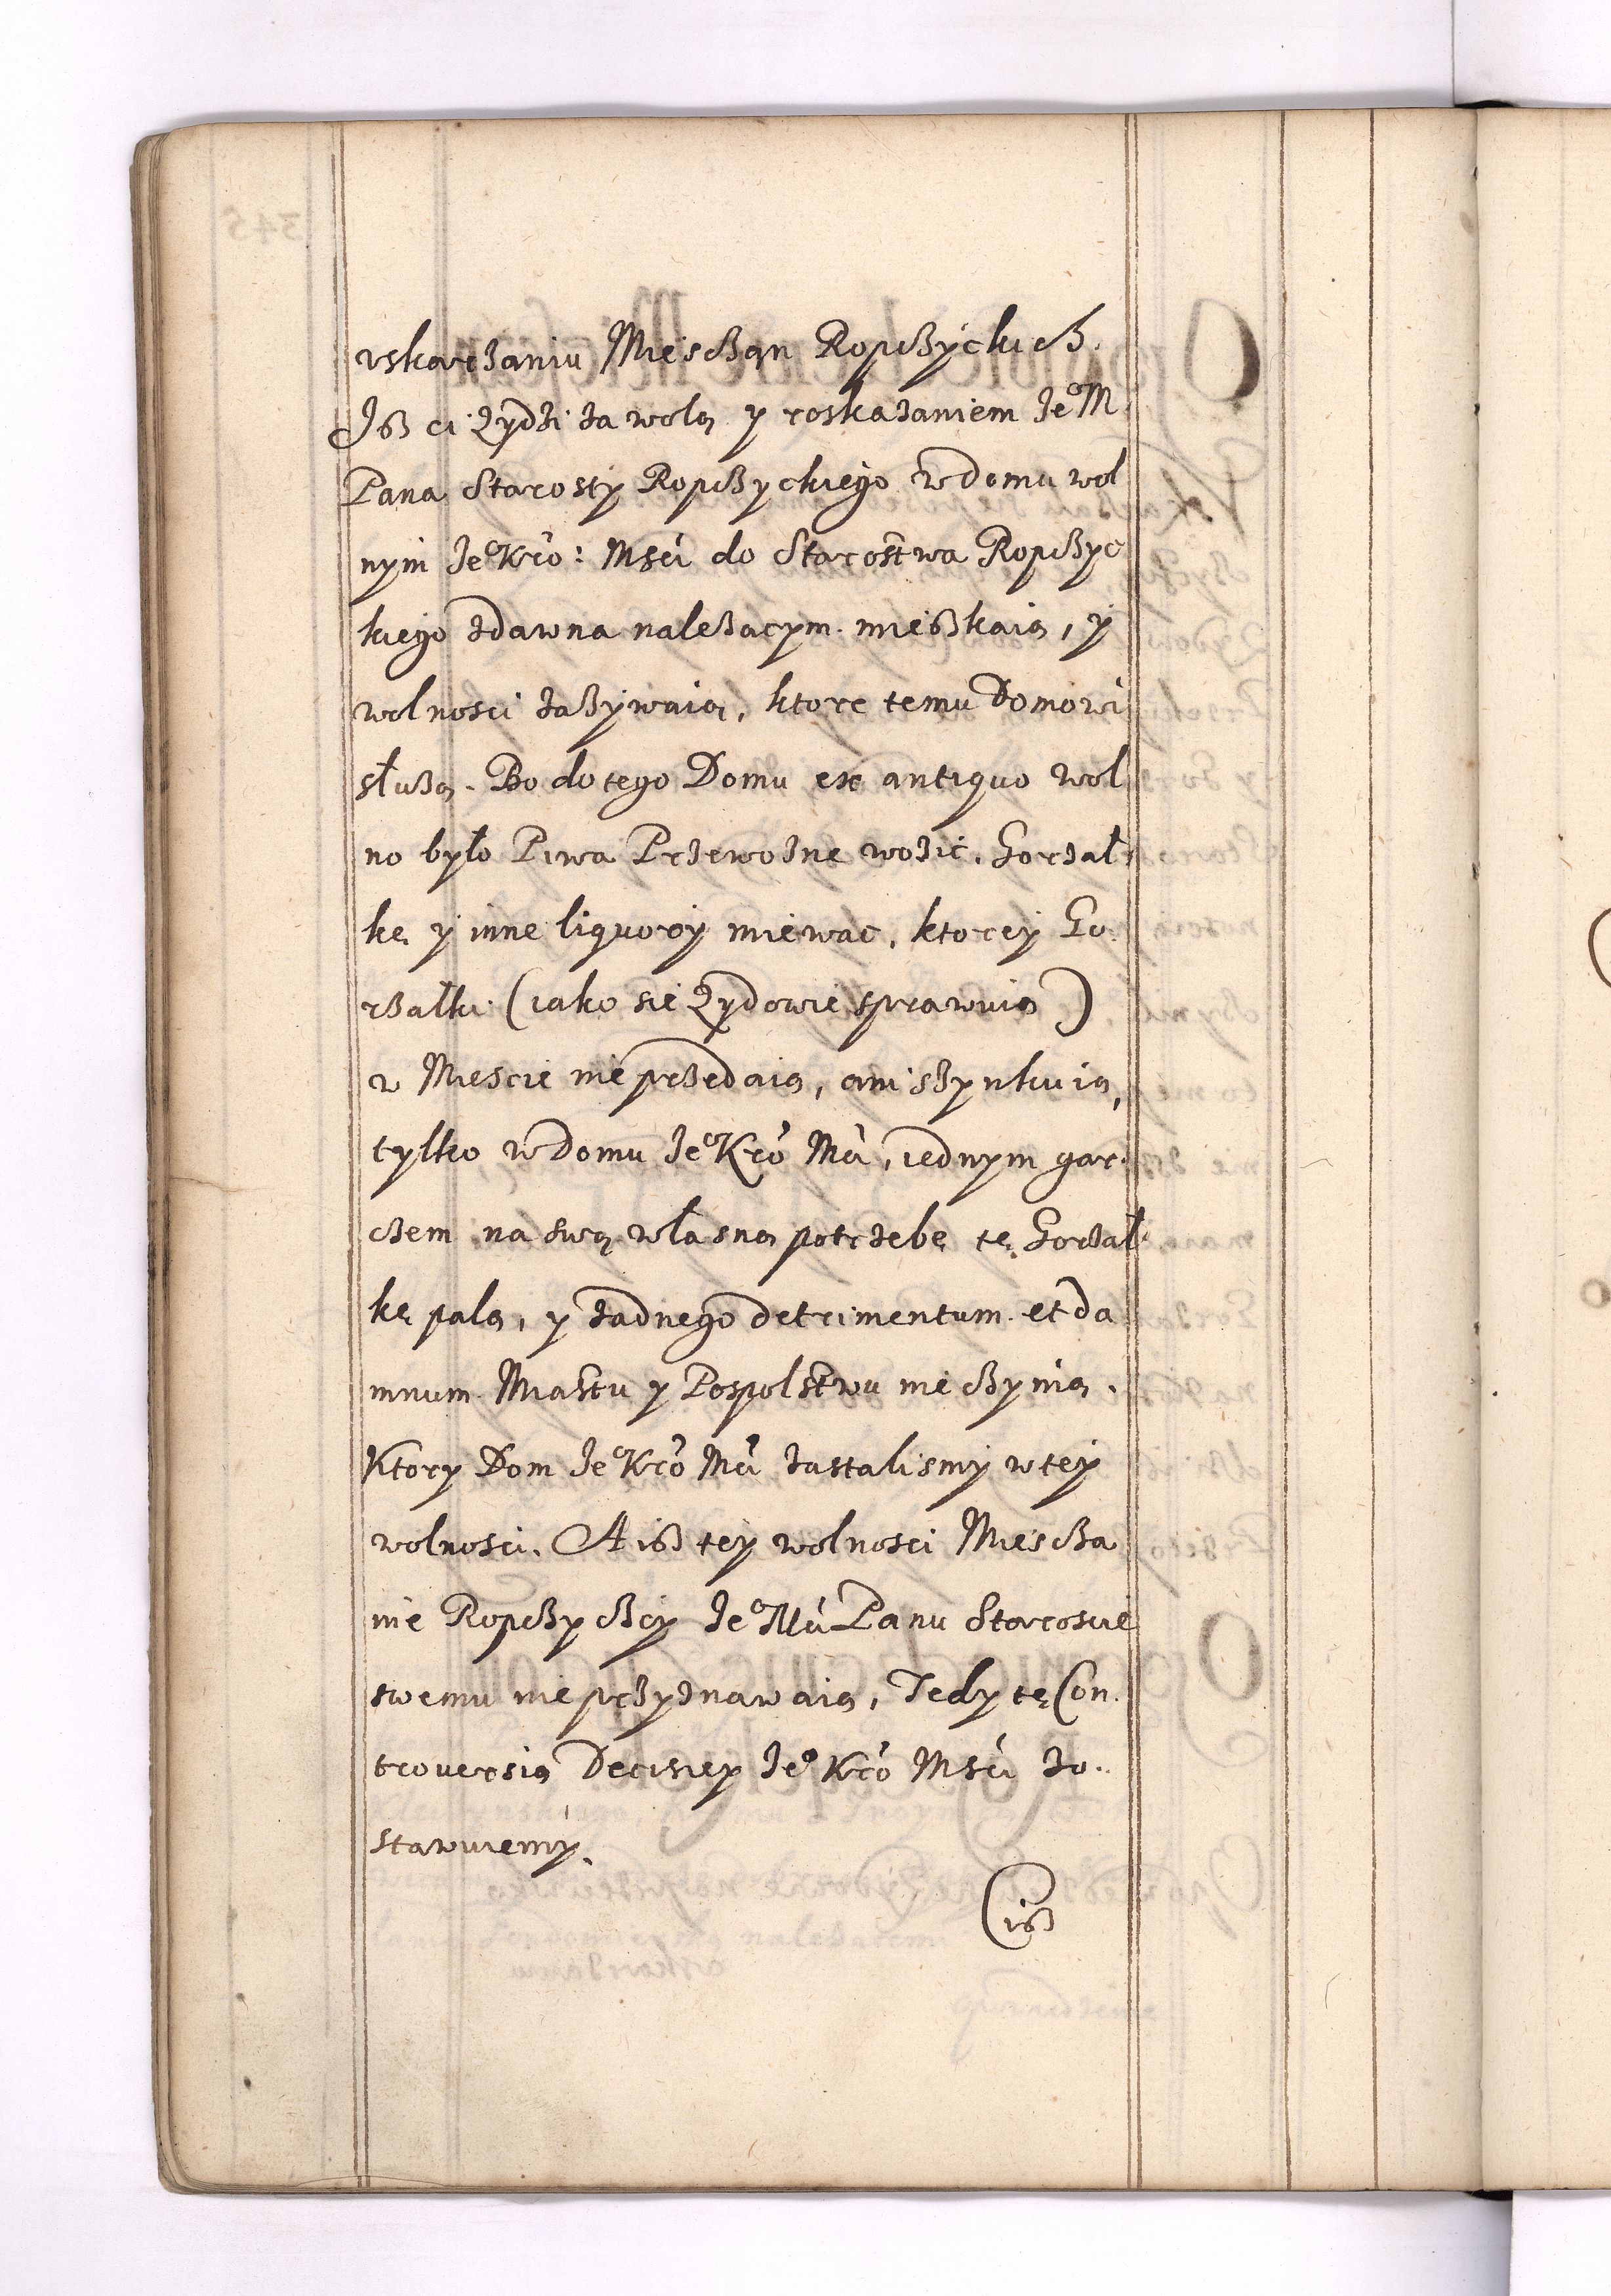 vskarzaniu Miesczan Ropczyckich.
Isz ci Zydzi za wolą y roskazaniem Jeº M
Pana Starosty Ropczyckiego w domu wol
nym Jeº Kró: Msći do Starostwa Ropczyc
kiego zdawna należącym mieszkaią, y
wolnosci zażywaią, ktore temu Domowi
służą. Bo do tego Domu ex antiquo wol
no było Piwa Przewozne wozić, Gorzał
kę y inne liquory miewac, ktorey Go
rzałki (iako się Zydowie sprawuią)
w Miescie nie przedaią, ani szynkuią,
tylko w Domu Jeº Kró Mći, iednym gar
czem na swą własną potrzebę tę Gorzał
kę palą, y żadnego detrimentum et da
mnum Miastu y Pospolstwu nie czynią.
Ktory Dom Jeº Kró Mći zastalismy w tey
wolnosci. A isz tey wolnosci Miescza
nie Ropczyccy Jeº Mći Panu Staroscie
swemu nie przyznawaią, Tedy tę Con
troversią Decisiey Jeº Kró Msći zo
stawuiemy.
isz